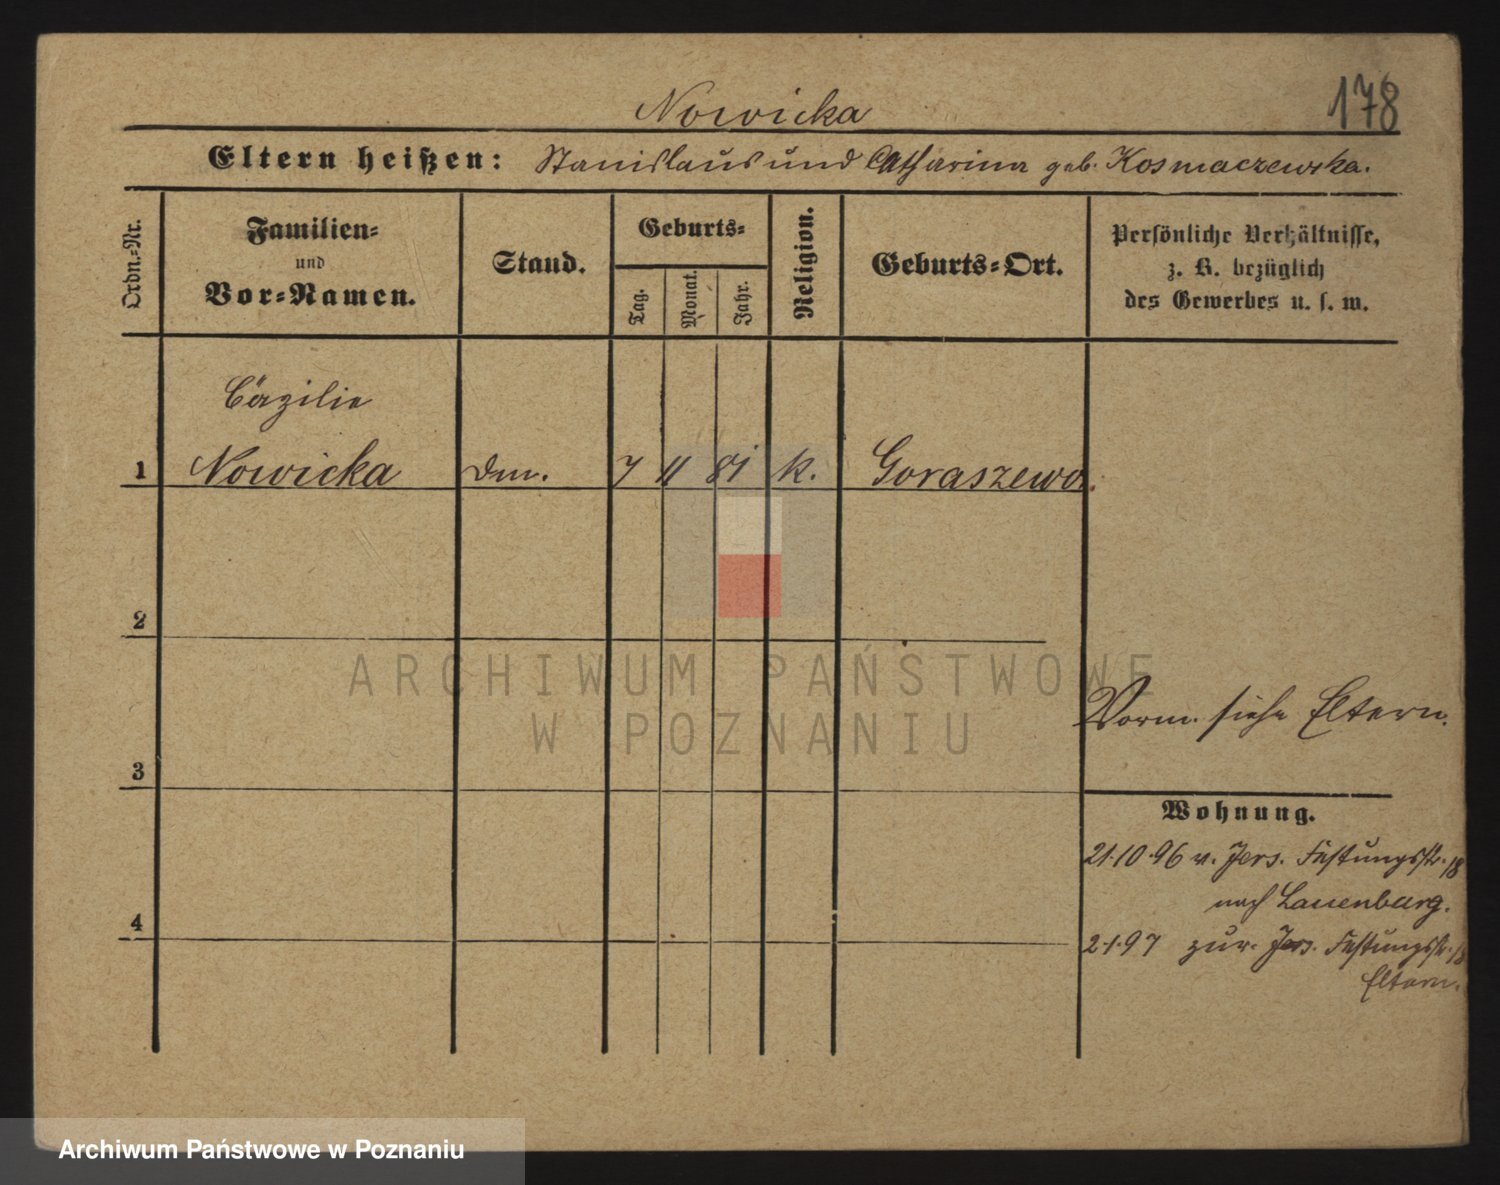 178
Nowicka
Eltern heißen: Stanislaus und Catharina geb. Kosmaczewska.
Ordn.=Nr.
Familien=
und
Vor=Namen.
Stand.
Geburts=
Tag.
Monat.
Jahr.
Religion.
Geburts=Ort.
Persönliche Verhältnisse,
z. B. bezüglich
des Gewerbes u. s. w.
Cäzilie
1 Nowicka 7 11 81 k. Goraszewo.
2
Vorm. siehe Eltern.
3
Wohnung.
21.10.96 v. Jers. Festungsstr. 18
nach Lauenburg.
4
2.1.97 zur. Jers. Festungsstr. 18
Eltern.
ARCHIWUM PAŃSTWOWE
W POZNANIU
Archiwum Państwowe w Poznaniu